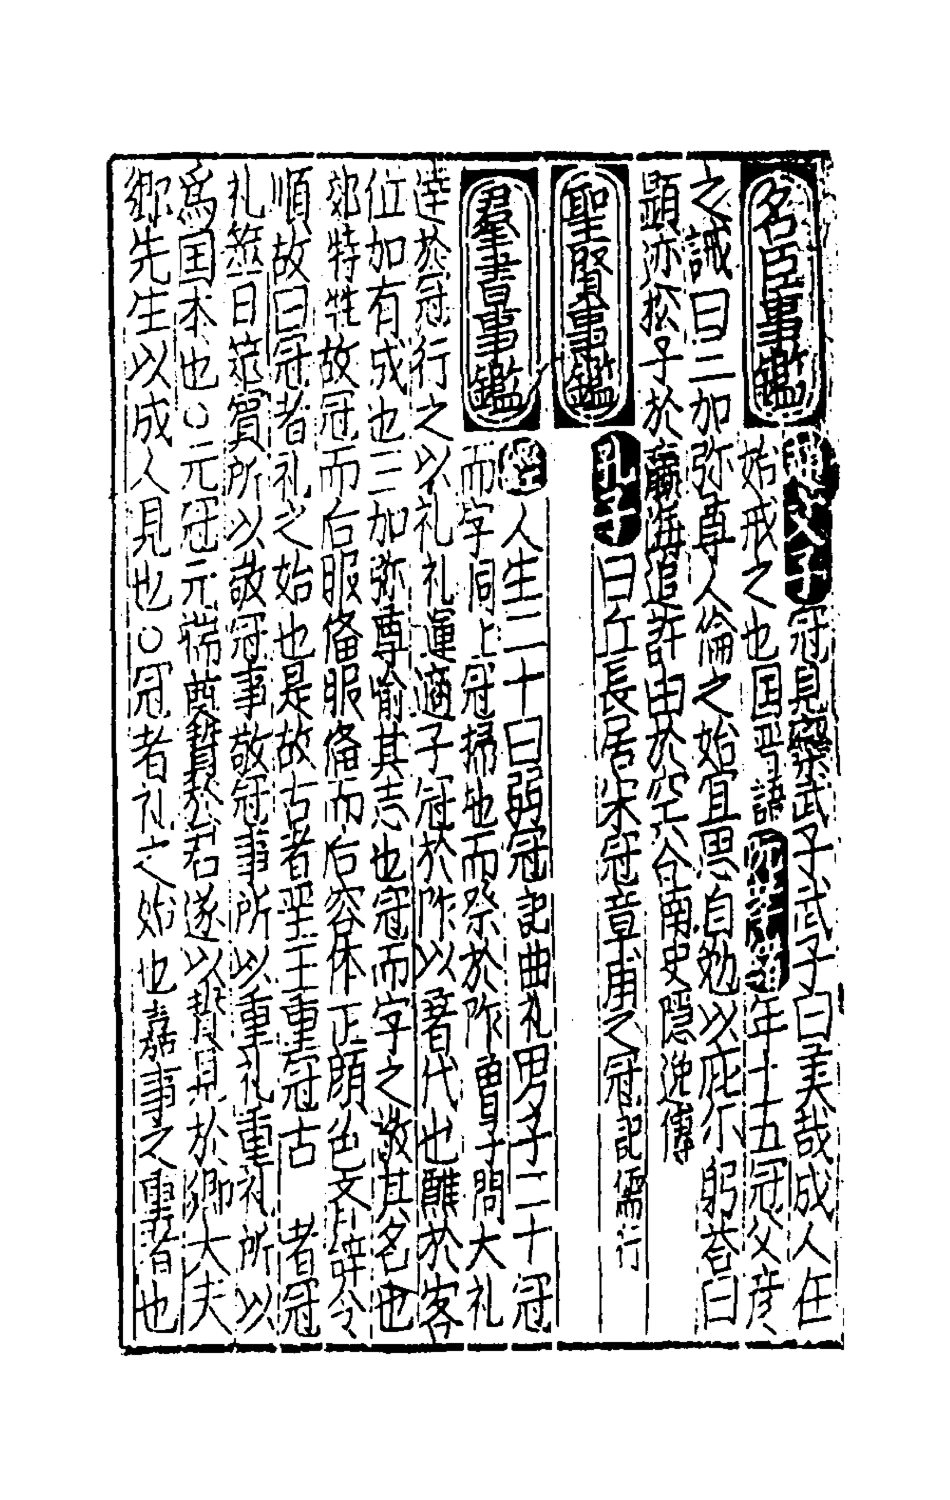 名臣事鑑
趙文子冠見欒武子武子曰美哉成人在
始戒之也国晉語阮孝緒年十五冠父彦
之誡曰三加弥尊人倫之始宜思自勉以庇尓躬荅曰
願迹松子於瀛海追許由於空谷南史隠逸傳
聖賢事鑑
孔子曰丘長居宋冠章甫之冠記儒行
羣書事鑑
經人生二十曰弱冠記曲礼男子二十冠
而字同上冠掃地而祭於阼曾子問大礼
逹於冠行之以礼礼運適子冠於阼以著代也醮於客
位加有成也三加弥尊喻其志也冠而字之敬其名也
郊特牲故冠而后服俻服俻而后容体正顔色文辞令
順故曰冠者礼之始也是故古者聖王重冠古者冠
礼筮日筮賓所以敬冠事敬冠事所以重礼重礼所以
為国本也○元冠元端奠贄於君遂以贄見於卿大夫
郷先生以成人見也○冠者礼之始也嘉事之重者也